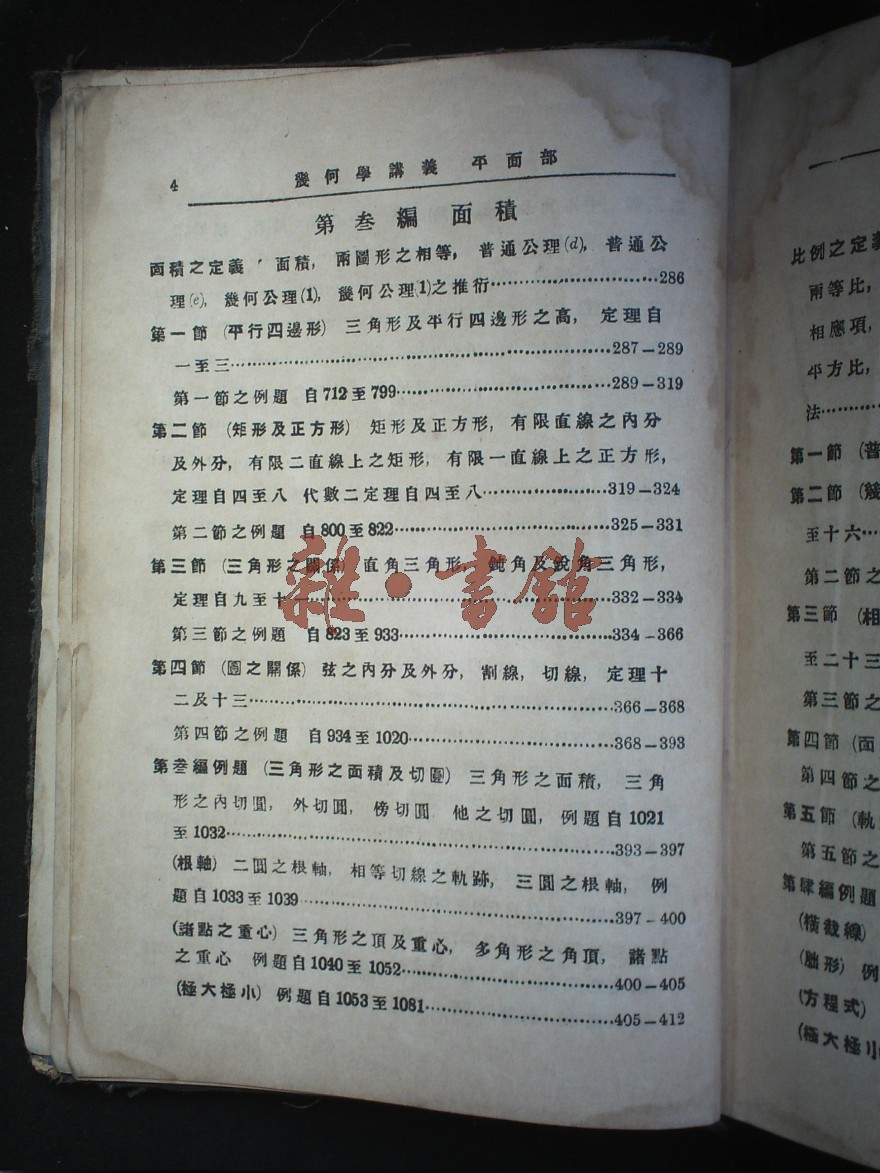 4
幾何學講義 平面部
第叁編 面積
面積之定義 面積, 兩圖形之相等, 普通公理(d), 普通公
理(e), 幾何公理(1), 幾何公理(1)之推衍……286
第一節 (平行四邊形) 三角形及平行四邊形之高, 定理自
一至三……287—289
第一節之例題 自712至799……289—319
第二節 (矩形及正方形) 矩形及正方形, 有限直線之內分
及外分, 有限二直線上之矩形, 有限一直線上之正方形,
定理自四至八 代數二定理自四至八……319—324
第二節之例題 自800至822……325—331
第三節 (三角形之關係) 直角三角形, 鈍角及銳角三角形,
定理自九至十一……332—334
第三節之例題 自823至933……334—366
第四節 (圓之關係) 弦之內分及外分, 割線, 切線, 定理十
二及十三……366—368
第四節之例題 自934至1020……368—393
第叁編例題 (三角形之面積及切圓) 三角形之面積, 三角
形之內切圓, 外切圓, 傍切圓 他之切圓, 例題自1021
至1032……393—397
(根軸) 二圓之根軸, 相等切線之軌跡, 三圓之根軸, 例
題自1033至1039……397—400
(諸點之重心) 三角形之頂及重心, 多角形之角頂, 諸點
之重心 例題自1040至1052……400—405
(極大極小) 例題自1053至1081……405—412
雜·書館
比例之定義
兩等比,
相應項,
平方比,
法……
第一節 (普
第二節
至十六…
第二節之
第三節 (相
至二十三
第三節之
第四節 (面
第四節之
第五節 (軌
第五節之
第肆編例題
(橫截線)
形) 例
(方程式)
(極大極小